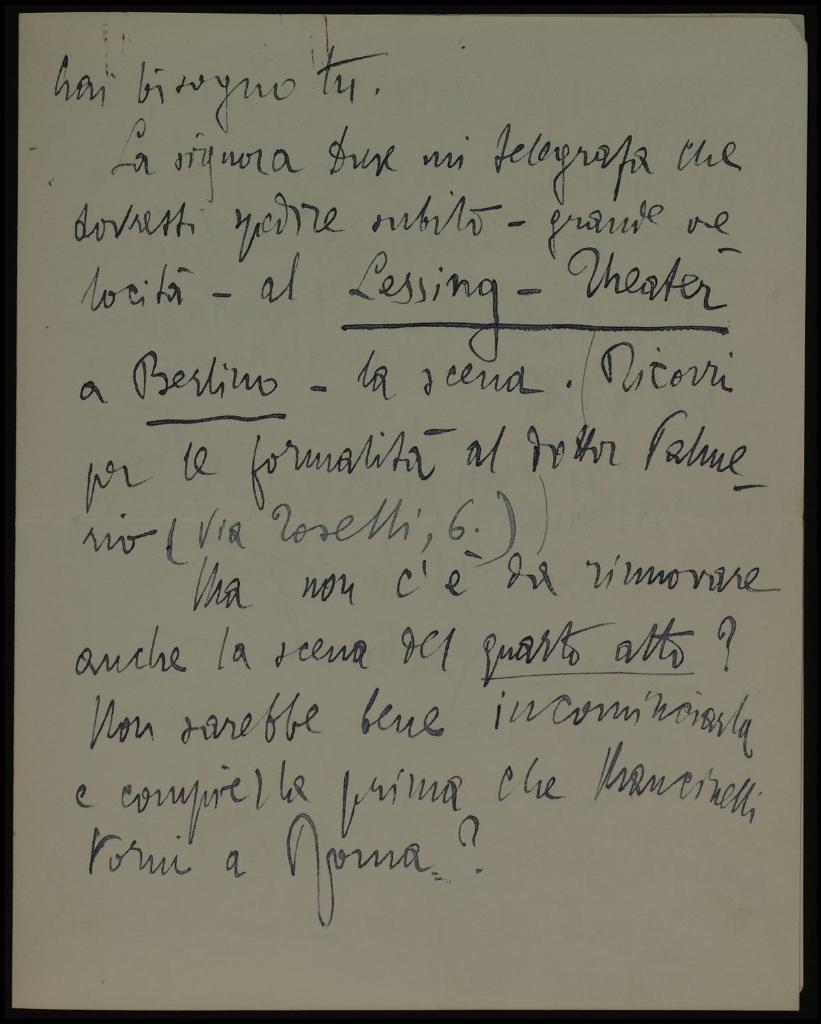 hai bisogno tu.
La signora Duse mi telegrafa che
dovresti spedire subito – grande ve
locità – al Lessing – Theater
a Berlino – la scena. (Ricorri
per le formalità al dottor Palme
rio (Via Roselli, 6.))
Ma non c'è da rinnovare
anche la scena del quarto atto?
Non sarebbe bene incominciarla
e compierla prima che Mancinelli
torni a Roma?